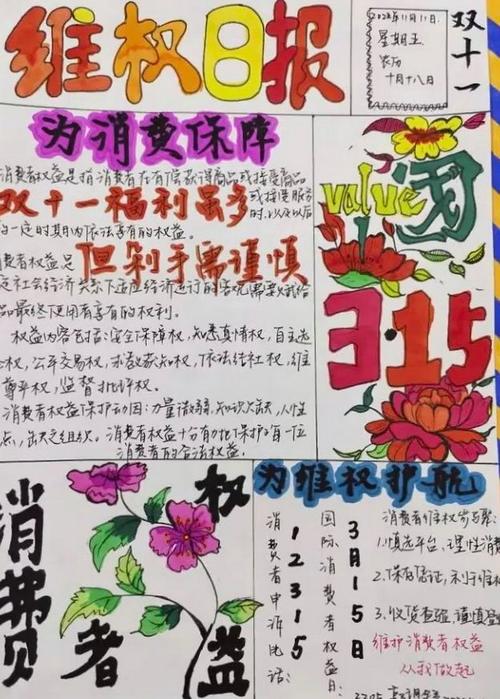 维权日报
2022年11月11日
星期五
农历
十月十八日
双十一
为消费保障
消费者权益是指消费者在有偿获得商品或接受商品
或接受服务
时,以及以后
双十一福利虽多
的一定时期内依法享有的权益。
费者权益是
但剁手需谨慎
定社会经济关系下适应经济运行的客观需要赋给
品最终使用者享有的权利。
权益内容包括:安全保障权,知悉真情权,自主选
权,公平交易权,求教获知权,依法结社权,维
尊严权,监督批评权。
消费者权益保护动因:力量微弱,知识欠缺,人性
点,缺乏组织。消费者权益十分有力地保护每一位
消费者的合法权益。
value
国
3·15
消费者
权益
为维权护航
消费者申诉电话:
12315
国际消费者权益日:
3月15日
消费者维权
1.慎选平台、理性消费
2.保存凭证,利于维权
3.收货查验,谨慎
维护消费者权益
从我做起